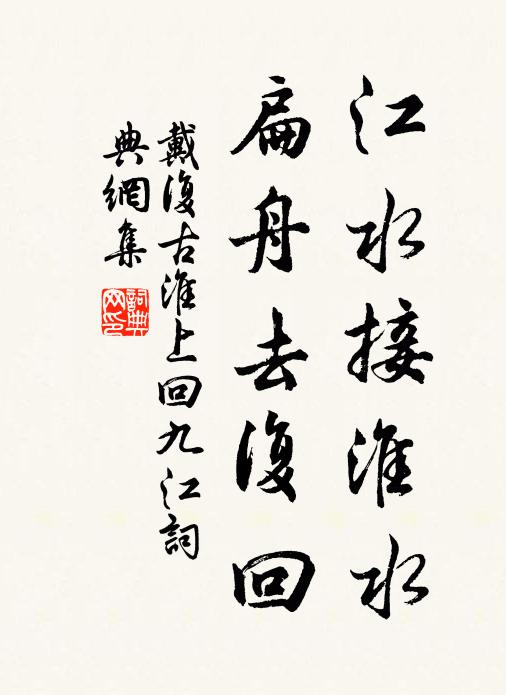 江水接淮水
扁舟去復回
戴復古淮上回九江詞
典網集
詞典網印